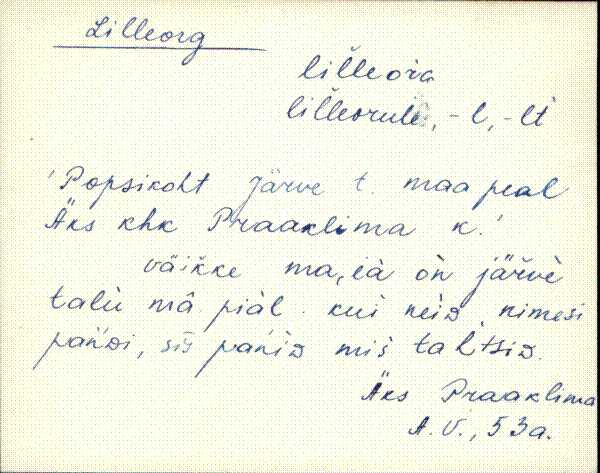 Lilleorg
lilleora
lilleorule, -l, -lt
'Popsikoht Järve t. maa peal
Äks khk Praaklima k.'
väikke ma,ia òn järvè
talù mâ piàl. kui neid nimesi
pandi, siš panid mis tahtsid.
Äks Praaklima
A. V., 53a.